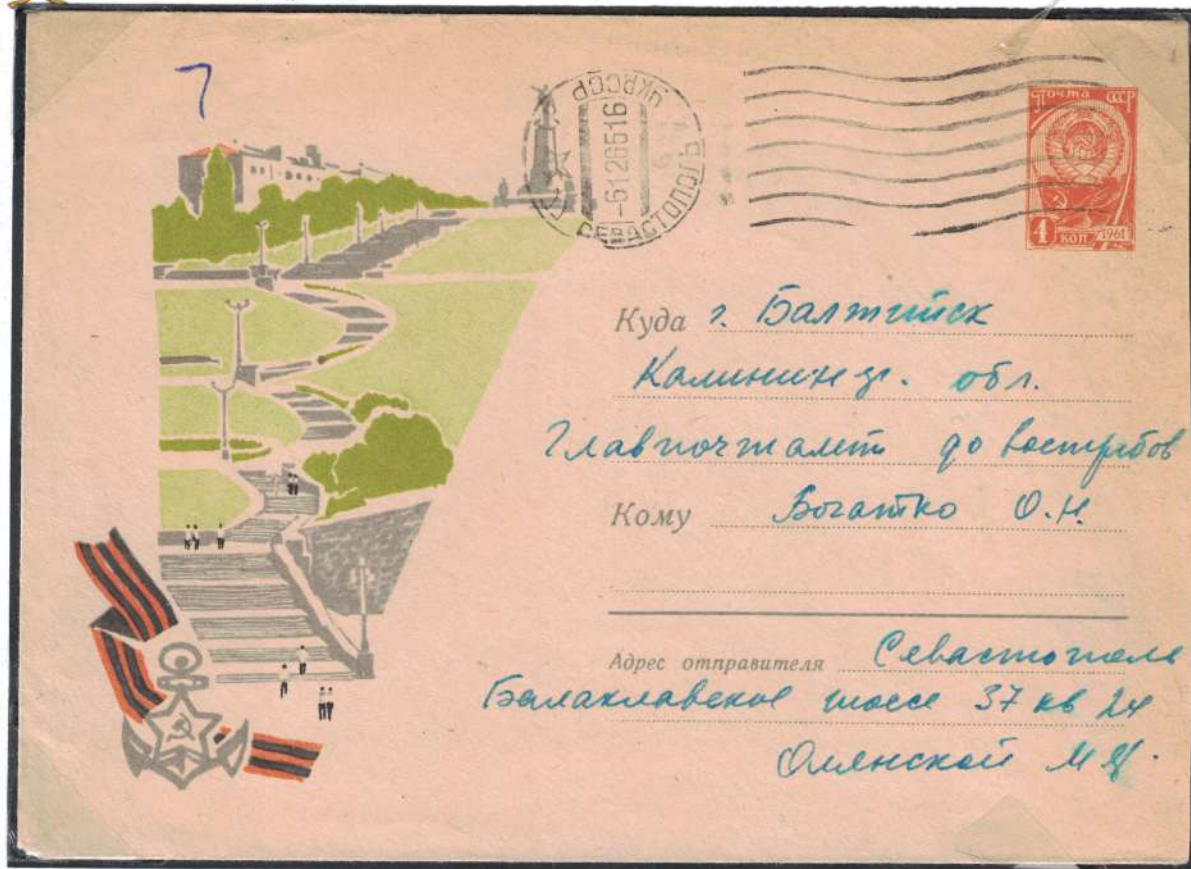 7
УКРССР
-6126516
СЕВАСТОПОЛЬ
Почта СССР
4 коп 1961
Куда г. Балтийск
Калининг. обл.
Главпочтамт до востребов
Кому Богатко О.Н.
Адрес отправителя Севастополь
Балаклавское шоссе 37 кв 24
Олянской М